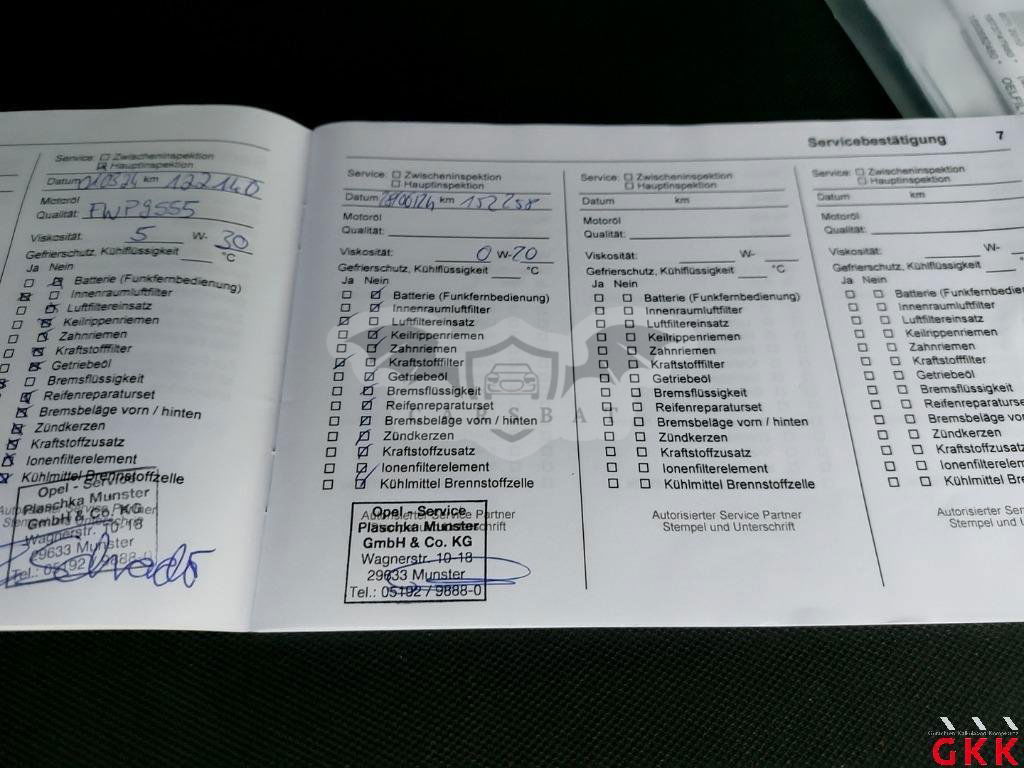 Servicebestätigung 7
Service: Zwischeninspektion
Hauptinspektion
Datum km 122140
Motoröl
Qualität: FWP9555
Viskosität: 5 W- 30
Gefrierschutz, Kühlflüssigkeit °C
Ja Nein
Batterie (Funkfernbedienung)
Innenraumluftfilter
Luftfiltereinsatz
Keilrippenriemen
Zahnriemen
Kraftstofffilter
Getriebeöl
Bremsflüssigkeit
Reifenreparaturset
Bremsbeläge vorn / hinten
Zündkerzen
Kraftstoffzusatz
Ionenfilterelement
Kühlmittel Brennstoffzelle
Opel - Service
Plaschka Munster
GmbH & Co. KG
Wagnerstr. 10-18
29633 Munster
Tel.: 05192 / 9888-0
Service: Zwischeninspektion
Hauptinspektion
Datum km 152258
Motoröl
Qualität:
Viskosität: 0 W-20
Gefrierschutz, Kühlflüssigkeit °C
Ja Nein
Batterie (Funkfernbedienung)
Innenraumluftfilter
Luftfiltereinsatz
Keilrippenriemen
Zahnriemen
Kraftstofffilter
Getriebeöl
Bremsflüssigkeit
Reifenreparaturset
Bremsbeläge vorn / hinten
Zündkerzen
Kraftstoffzusatz
Ionenfilterelement
Kühlmittel Brennstoffzelle
Autorisierter Service Partner
Opel - Service
Plaschka Munster
GmbH & Co. KG
Wagnerstr. 10-18
29633 Munster
Tel.: 05192 / 9888-0
Service: Zwischeninspektion
Hauptinspektion
Datum km
Motoröl
Qualität:
Viskosität: W-
Gefrierschutz, Kühlflüssigkeit °C
Ja Nein
Batterie (Funkfernbedienung)
Innenraumluftfilter
Luftfiltereinsatz
Keilrippenriemen
Zahnriemen
Kraftstofffilter
Getriebeöl
Bremsflüssigkeit
Reifenreparaturset
Bremsbeläge vorn / hinten
Zündkerzen
Kraftstoffzusatz
Ionenfilterelement
Kühlmittel Brennstoffzelle
Autorisierter Service Partner
Stempel und Unterschrift
Service: Zwischeninspektion
Hauptinspektion
Datum km
Motoröl
Qualität:
Viskosität: W-
Gefrierschutz, Kühlflüssigkeit
Ja Nein
Batterie (Funkfernbedie
Innenraumluftfilter
Luftfiltereinsatz
Keilrippenriemen
Zahnriemen
Kraftstofffilter
Getriebeöl
Bremsflüssigkeit
Reifenreparaturset
Bremsbeläge vorn
Zündkerzen
Kraftstoffzusatz
Ionenfilterelement
Kühlmittel Bre
Autorisierter Se
Stempel und U
GKK